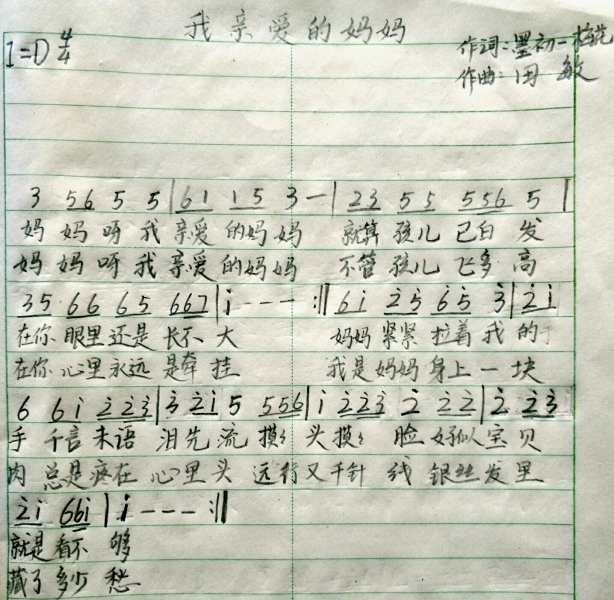 我亲爱的妈妈
1=D 4/4
作词:墨初一梅花
作曲:田 敏
3 56 5 5 | 61 15 3 — | 23 55 556 5 |
妈 妈 呀 我 亲爱 的 妈妈 就算 孩儿 已白 发
妈 妈 呀 我 亲爱 的妈妈 不管 孩儿 飞多 高
35 66 65 667 | i - - - :|| 6i 25 65 3 | 2i
在你 眼里 还是 长不 大 妈妈 紧紧 拉着 我 的
在你 心里 永远 是牵 挂 我是 妈妈 身上 一 块
6 6i 223 | 3 2i 5 556 | i 223 2 22 | 2 23
手 千言 未语 泪先 流 摸摸 头摸摸 脸 好似 宝 贝
肉 总是 疼在 心里 头 远行 又 千针 线 银丝 发 里
2i 66i | i - - - :||
就是 看不 够
藏了 多少 愁